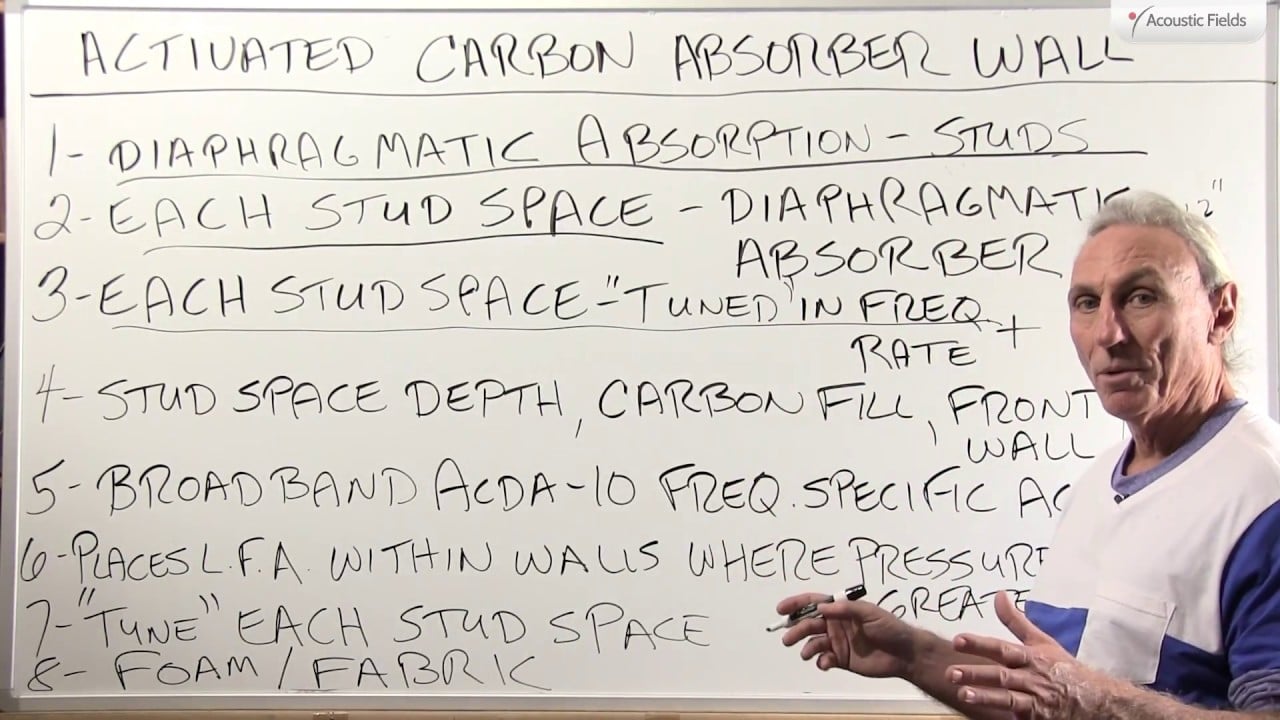 Acoustic Fields
ACTIVATED CARBON ABSORBER WALL
1- DIAPHRAGMATIC ABSORPTION - STUDS
2- EACH STUD SPACE - DIAPHRAGMATIC
ABSORBER
3- EACH STUD SPACE - "TUNED" IN FREQ +
RATE
4- STUD SPACE DEPTH, CARBON FILL, FRONT
WALL
5- BROADBAND ACDA-10 FREQ. SPECIFIC
6- PLACES L.F.A. WITHIN WALLS WHERE PRESSURE
7- "TUNE" EACH STUD SPACE
8- FOAM / FABRIC